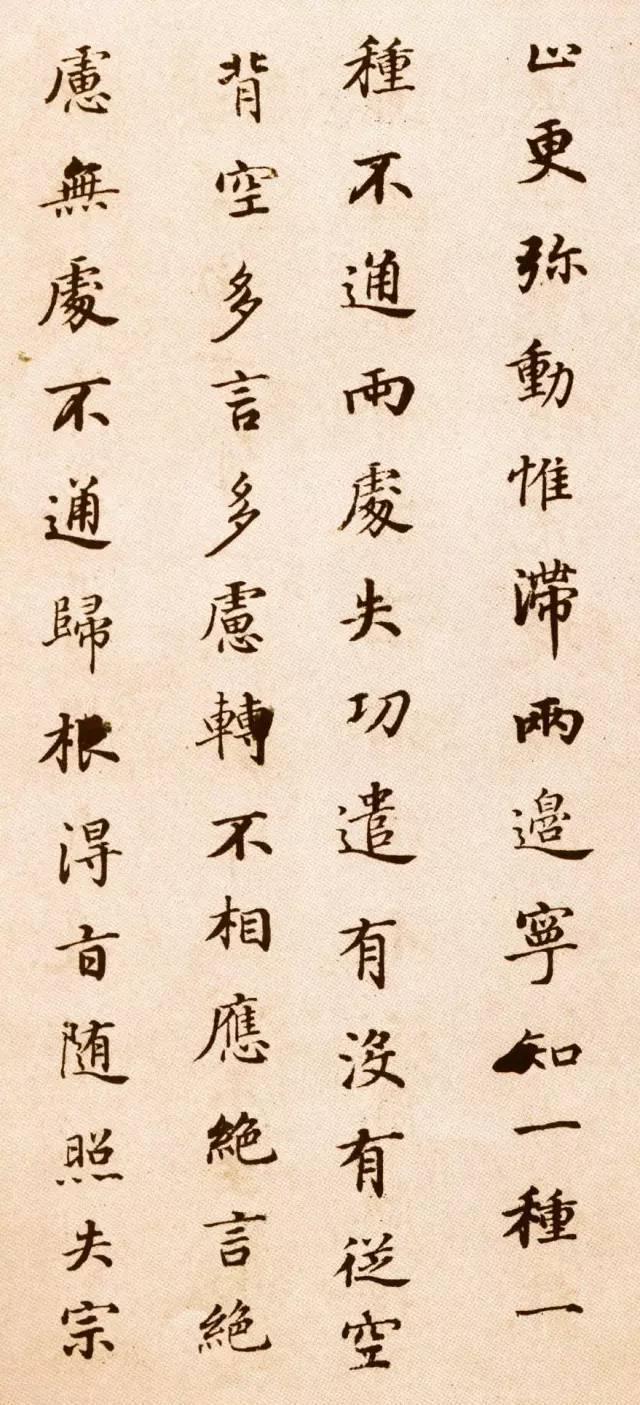 止更弥動惟滯兩邊寧知一種一
種不通兩處失功遣有沒有従空
背空多言多慮轉不相應絶言絶
慮無處不通歸根得旨随照失宗